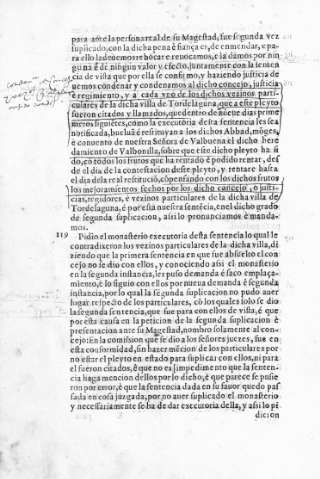 para ante la persona real de su Magestad, fue segunda vez
suplicado, con la dicha pena è fianças, de enmendar, e pa-
ra ello la deuemos reuocar e reuocamos, e la damos por nin-
guna è de ningun valor y efecto, juntamente con la senten
cia de vista que por ella se confirmò, y haziendo justicia de
uemos condenar y condenamos al dicho concejo, justicia
è regimiento, y a cada vno de los dichos vezinos parti-
culares de la dicha villa de Tordelaguna, que a este pleyto
fueron citados y llamados, que dentro de nueue dias prime
ros siguiètes, como la executoria desta sentencia les sea
notificada, bueluā è restituyan a los dichos Abbad, mōges,
è conuento de nuestra Señora de Valbuena el dicho here
damiento de Valbonilla, sobre que este dicho pleyto ha si
do, cō todos los frutos que ha rentado è podido rentar, des
de el dia de la contestacion deste pleyto, y rentare hasta
el dia dela real restitucio, cōpensando con los dichos frutos
los mejoramientos fechos por el dicho concejo, ò justi-
cias, regidores, è vezinos particulares de la dicha villa de
Tordelaguna, è por esta nuestra sentēcia, en el dicho grado
de segunda suplicacion, assi lo pronunciamos è manda-
mos.
119 Pidio el monasterio executoria desta sentencia lo qual le
contradixeron los vezinos particulares de la dicha villa, di
ziendo que la primera sentencia en que fue absuelto el con
cejo no se dio con ellos, y conociendo assi el monasterio
en la segunda instancia, les puso demanda è saco emplaça-
miento, è lo siguio con ellos por nueua demanda è segunda
instancia, por lo qual la segunda suplicacion no pudo auer
lugar respecto de los particulares, cō los quales solo se dio
la segunda sentencia, que fue para con ellos de vista, è que
por esta causa en la peticion de la segunda suplicacion è
presentacion ante su Magestad, nombro solamente al con-
cejo: en la comission que se dio a los señores juezes, fue en
esta conformidad, sin hazer mēcion de los particulares por
no estar el pleyto en estado para suplicar con ellos, ni para
el fueron citados, è que no es impedimento que la senten-
cia haga mencion dellos por lo dicho, è que parece se pusie
ron por error, è que la sentencia dada en su fauor quedo pas
sada en cosa juzgada, por no auer suplicado el monasterio
y necessariamente se ha de dar executoria della, y assi lo pi
dieron